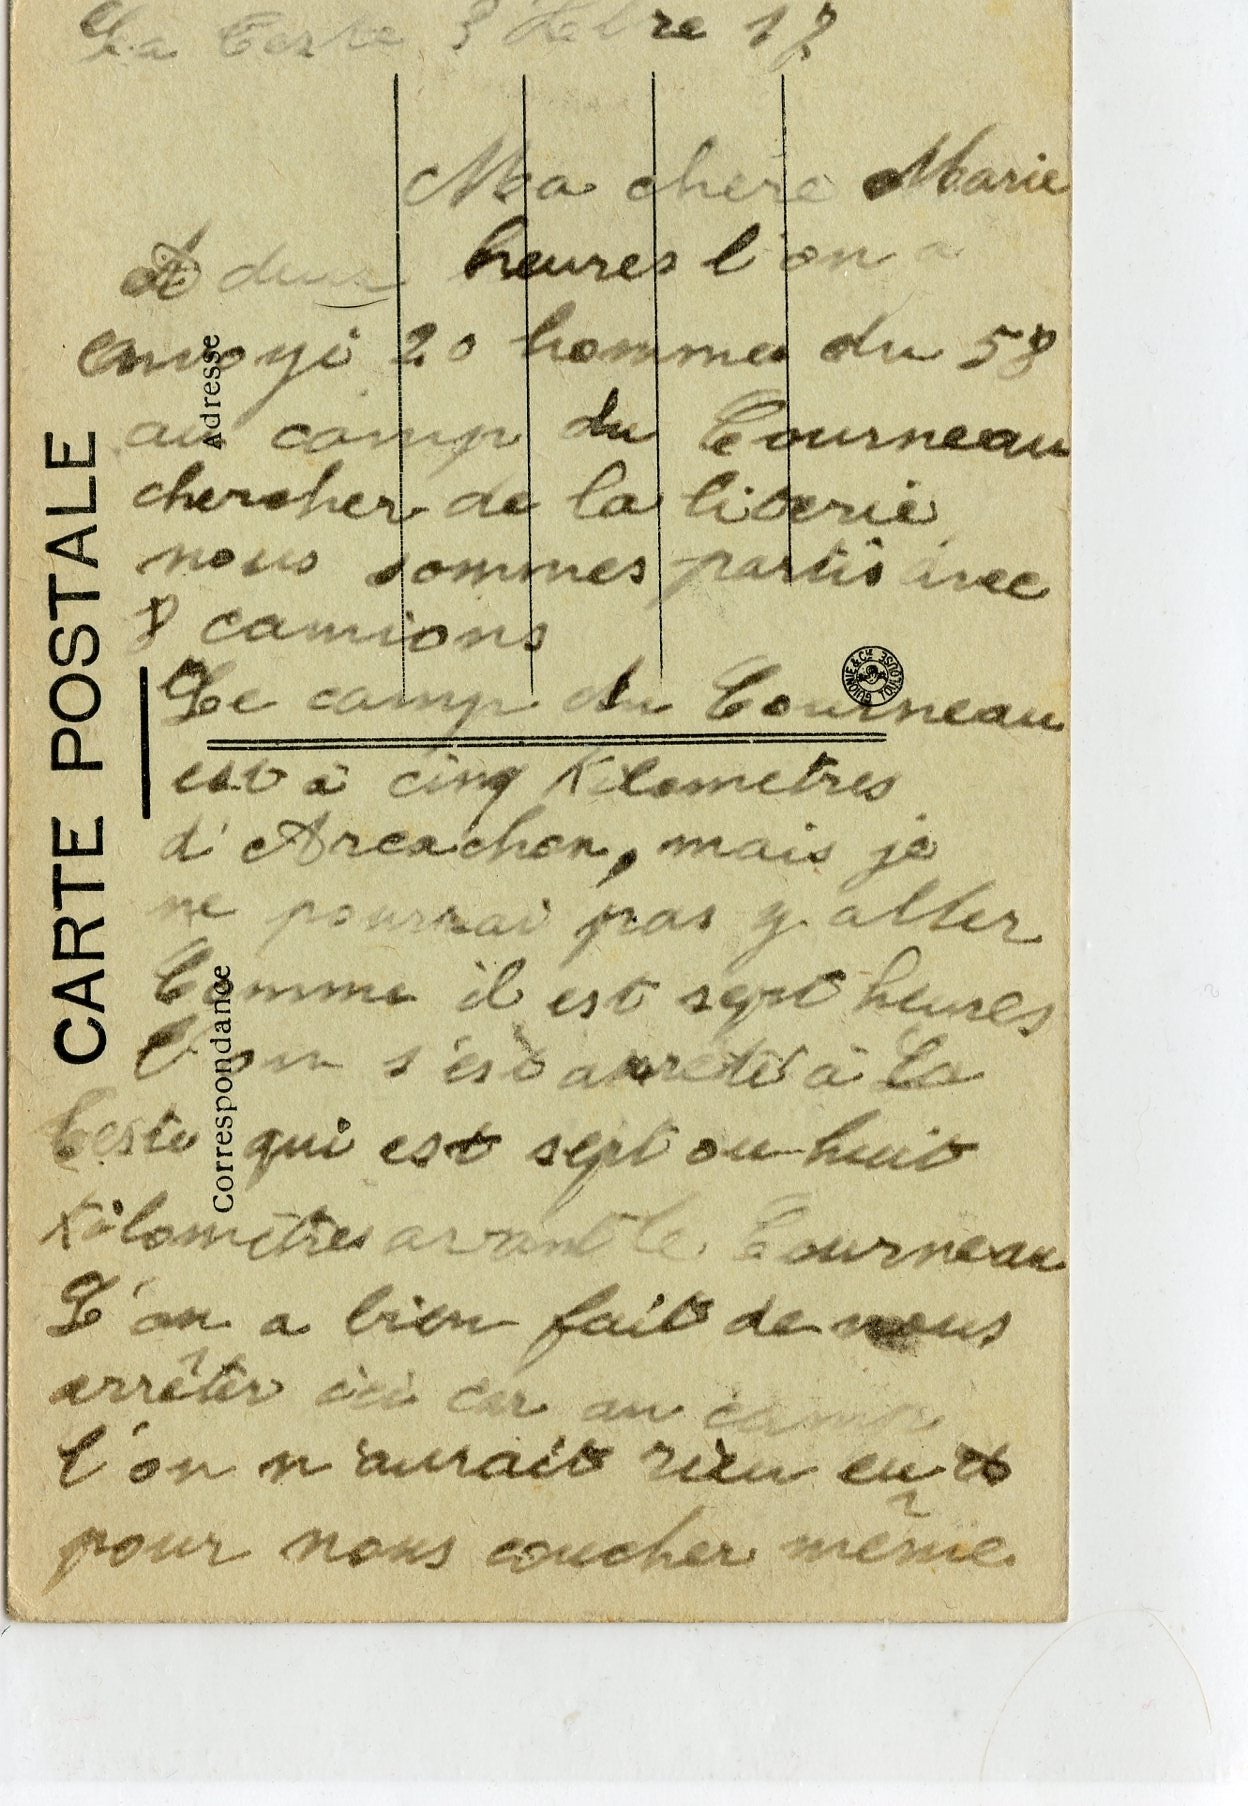 La Teste 8 bre 17
Ma chère Marie
A deux heures l'on a
envoyé 20 hommes du 58
au camp du Courneau
chercher de la literie
nous sommes partis avec
8 camions
Le camp du Courneau
est à cinq Kilometres
d'Arcachon, mais je
ne pourrai pas y aller
Comme il est sept heures
l'on s'est arrêté à La
Teste qui est sept ou huit
Kilomètres avant le Courneau
L'on a bien fait de nous
arrêter ici car au camp
l'on n'aurait rien eu
pour nous coucher même
CARTE POSTALE
Correspondance
Adresse
GUIONIE & Cie TOULOUSE